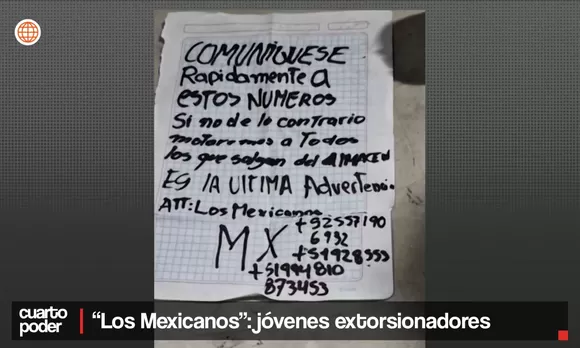 COMUNIQUESE
Rapidamente a
ESTOS NUMEROS
Si no de lo contrario
mataremos a Todos
los que salgan del AlMACEN
ES lA UlTIMA Advertencia
ATT: Los Mexicanos
MX
+52557190
6932
+51928353
+51994810
873453
cuarto
poder
“Los Mexicanos”: jóvenes extorsionadores